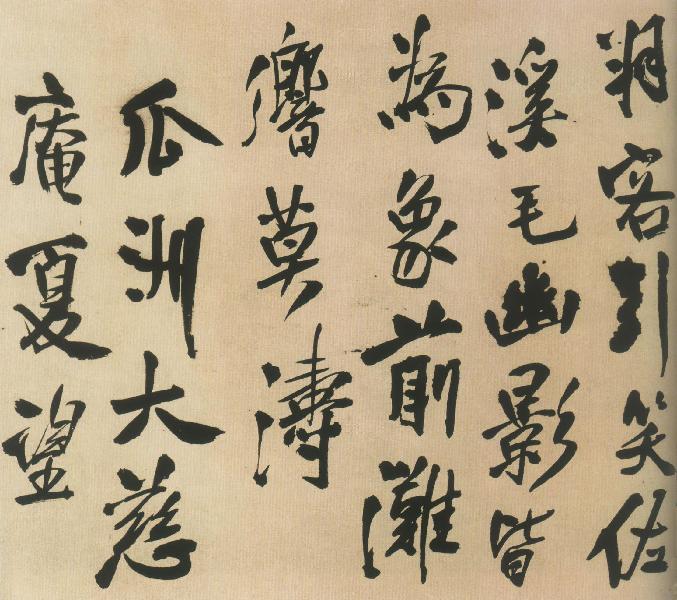 朔客引笑佐
溪毛幽影皆
為象前灘
響莫濤
瓜洲大慈
庵夏望